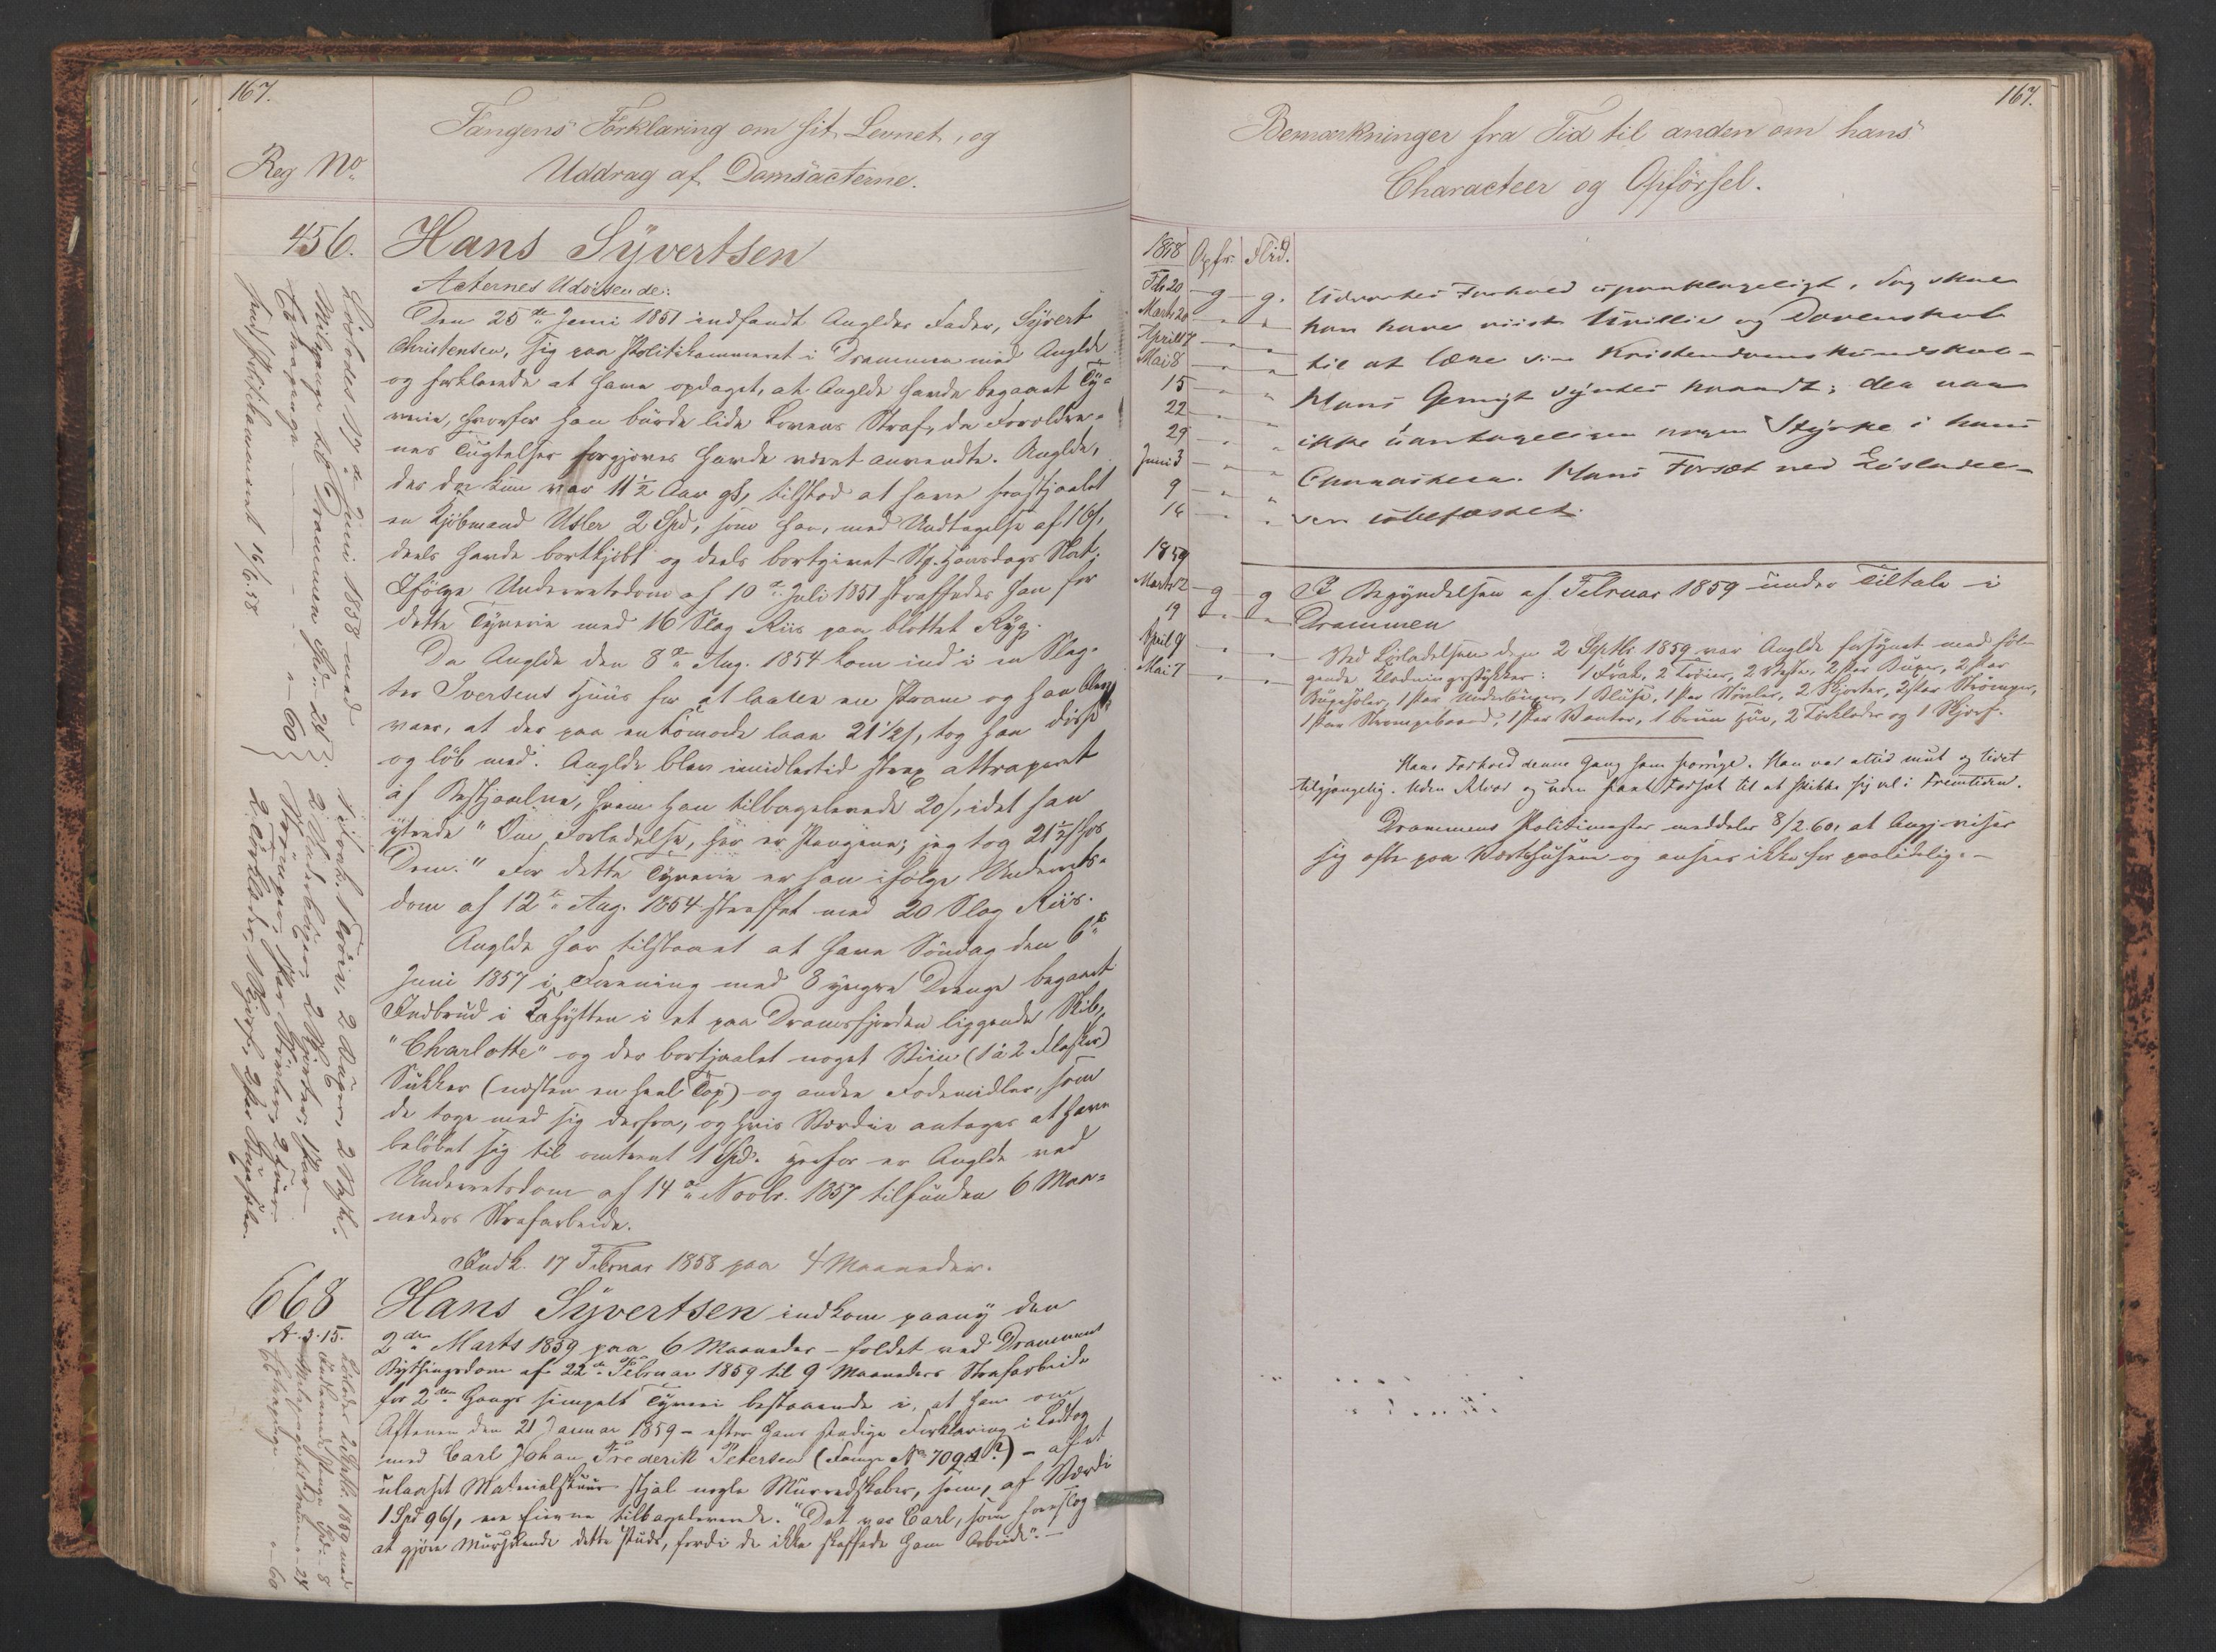 167.
Reg No
Fangens Forklaring om sit Levnet, og
Uddrag af Domsacterne.
456.
Hans Syvertsen
Acternes Udvisende:
Den 25de Juni 1851 indfandt Anglds Fader, Syvert
Christensen, sig paa Politikammeret i Drammen med Anglde
og forklarede at have opdaget, at Anglde havde begaaet Ty-
verie, hvorfor han burde lide Lovens Straf, da Foreldre-
nes Tugtelser forgjæves havde været anvendte. Anglde,
der da kun var 11½ Aar gl, tilstod at have frastjaalet
en Kjøbmand 2 Spd, som han, med Undtagelse af 16 s,
deels havde bortkjøbt og deels bortgivet St. Hansdags Nat.
Ifølge Underretsdom af 10de Juli 1851 straffedes han for
dette Tyverie med 16 Slag Riis paa blottet Ryg.
Da Anglde den 8de Aug. 1854 kom ind i en Slag-
ter Iversens Huus for at en Pram og han blev
vaer, at der paa en Comode laae 21½ s, tog han disse
og løb med. Anglde blev imidlertid strax attraperet
af Bestjaalne, hvem han tilbageleverede 20 s, idet han
ytrede "Om Forladelse, her er Pengene; jeg tog 21½ s hos
Dem." For dette Tyverie er han ifølge Underrets-
dom af 12te Aug. 1854 straffet med 20 Slag Riis.
Anglde har tilstaaet at have Søndag den 6te
Juni 1857 i Forening med 3 yngre Drenge begaaet
Indbrud i Kahytten i et paa Dramsfjorden liggende Skib,
"Charlotte" og der bortjaalet noget Viin (1 à 2 Flasker)
Sukker (næsten en heel Top) og andre Fødemidler, som
de toge med sig derfra, og hvis Værdie antages at have
beløbet sig til omtrent 1 Spd. Herfor er Anglde ved
Underretsdom af 14de Novbr. 1857 tilfunden 6 Maa-
neders Strafarbeide.
Indk. 17 Februar 1858 paa 4 Maaneder.
Løslades 17de Juni 1858 med
Milepenge til Drammen
Extrapenge - 60
Indk. Politikammeret 16/6 58
1 Frak, 1 Trøie, 2 Buxer, 2 Veste,
2 Underbuxer, 2 Skjorter, 1 Par
Strømper, 1 Par Støvler, 2 Luer
2 Tørklæder, 1 Skjerf, 2 Par Buxeseler
668
A. 3. 15.
Hans Syvertsen indkom paany den
2den Marts 1859 paa 6 Maaneder - foldet ved Drammens
Bythingsdom af 22de Februar 1859 til 9 Maaneders Strafarbeide
for 2den Gangs simpelt Tyveri bestaaende i, at han om
Aftenen den 21 Januar 1859 - efter hans stadige Forklaring i Ledtog
med Carl Johan Frederik Petersen (Fange No 709 A?) - af et
ulaaset Materialskuur stjal nogle Muurredskaber, som, af Værdi
1 Spd 96 s, ere Eierne tilbageleverede. "Det var Carl, som foreslog
at gjøre Mursvende dette Puds, fordi de ikke skaffede ham Arbeide". -
Løslades 2 Septbr. 1859 med
Indtjente Penge Spd. - 8
Milepenge til Drammen - 24
Extrapenge - 60
167.
Bemærkninger fra Tid til anden om hans
Characteer og Opførsel.
1858 Opfr. Flid.
Feb 20 - g - g.
Marts 20 - " - "
April 17 - " - "
Mai 8 - " - "
15 - " - "
22 - " - "
29 - " - "
Juni 3 - " - "
9 - " - "
16 - " - "
Udvortes Forhold upaaklageligt, dog skal
han have viist Uvillie og Dovenskab
til at lære sin Kristendomskundskab -
Hans Gemyt syntes haardt; der var
ikke uantagelisen nogen Styrke i hans
Charakteer. Hans Forsæt ved Løsladel-
sen ubefæstet.
1859
Marts 12 - g - g
19 - " - "
April 9 - " - "
Mai 7 - " - "
I Begyndelsen af Februar 1859 under Tiltale i
Drammen
Ved Løsladelsen den 2 Septbr 1859 var Anglde forsynet med føl-
gende Klædningsstykker: 1 Frak, 2 Trøier, 2 Veste, 2 Par Buxer, 2 Par
Buxeseler, 1 Par Underbuxer, 1 Bluse, 1 Par Støvler, 2 Skjorter, 2 Par Strømper,
1 Par Strømpebaand, 1 Par Vanter, 1 bruun Hue, 2 Tørklæder og 1 Skjerf.
Hans Forhold denne Gang som forrige. Han var altid mut og lidet
tilgjængelig. Uden Alvor og uden sandt Forsæt til at skikke sig vel i Fremtiden.
Drammens Politimester meddeler 8/2 60, at Angj. viser
sig ofte paa Værtshusene og ansees ikke for paalidelig. -